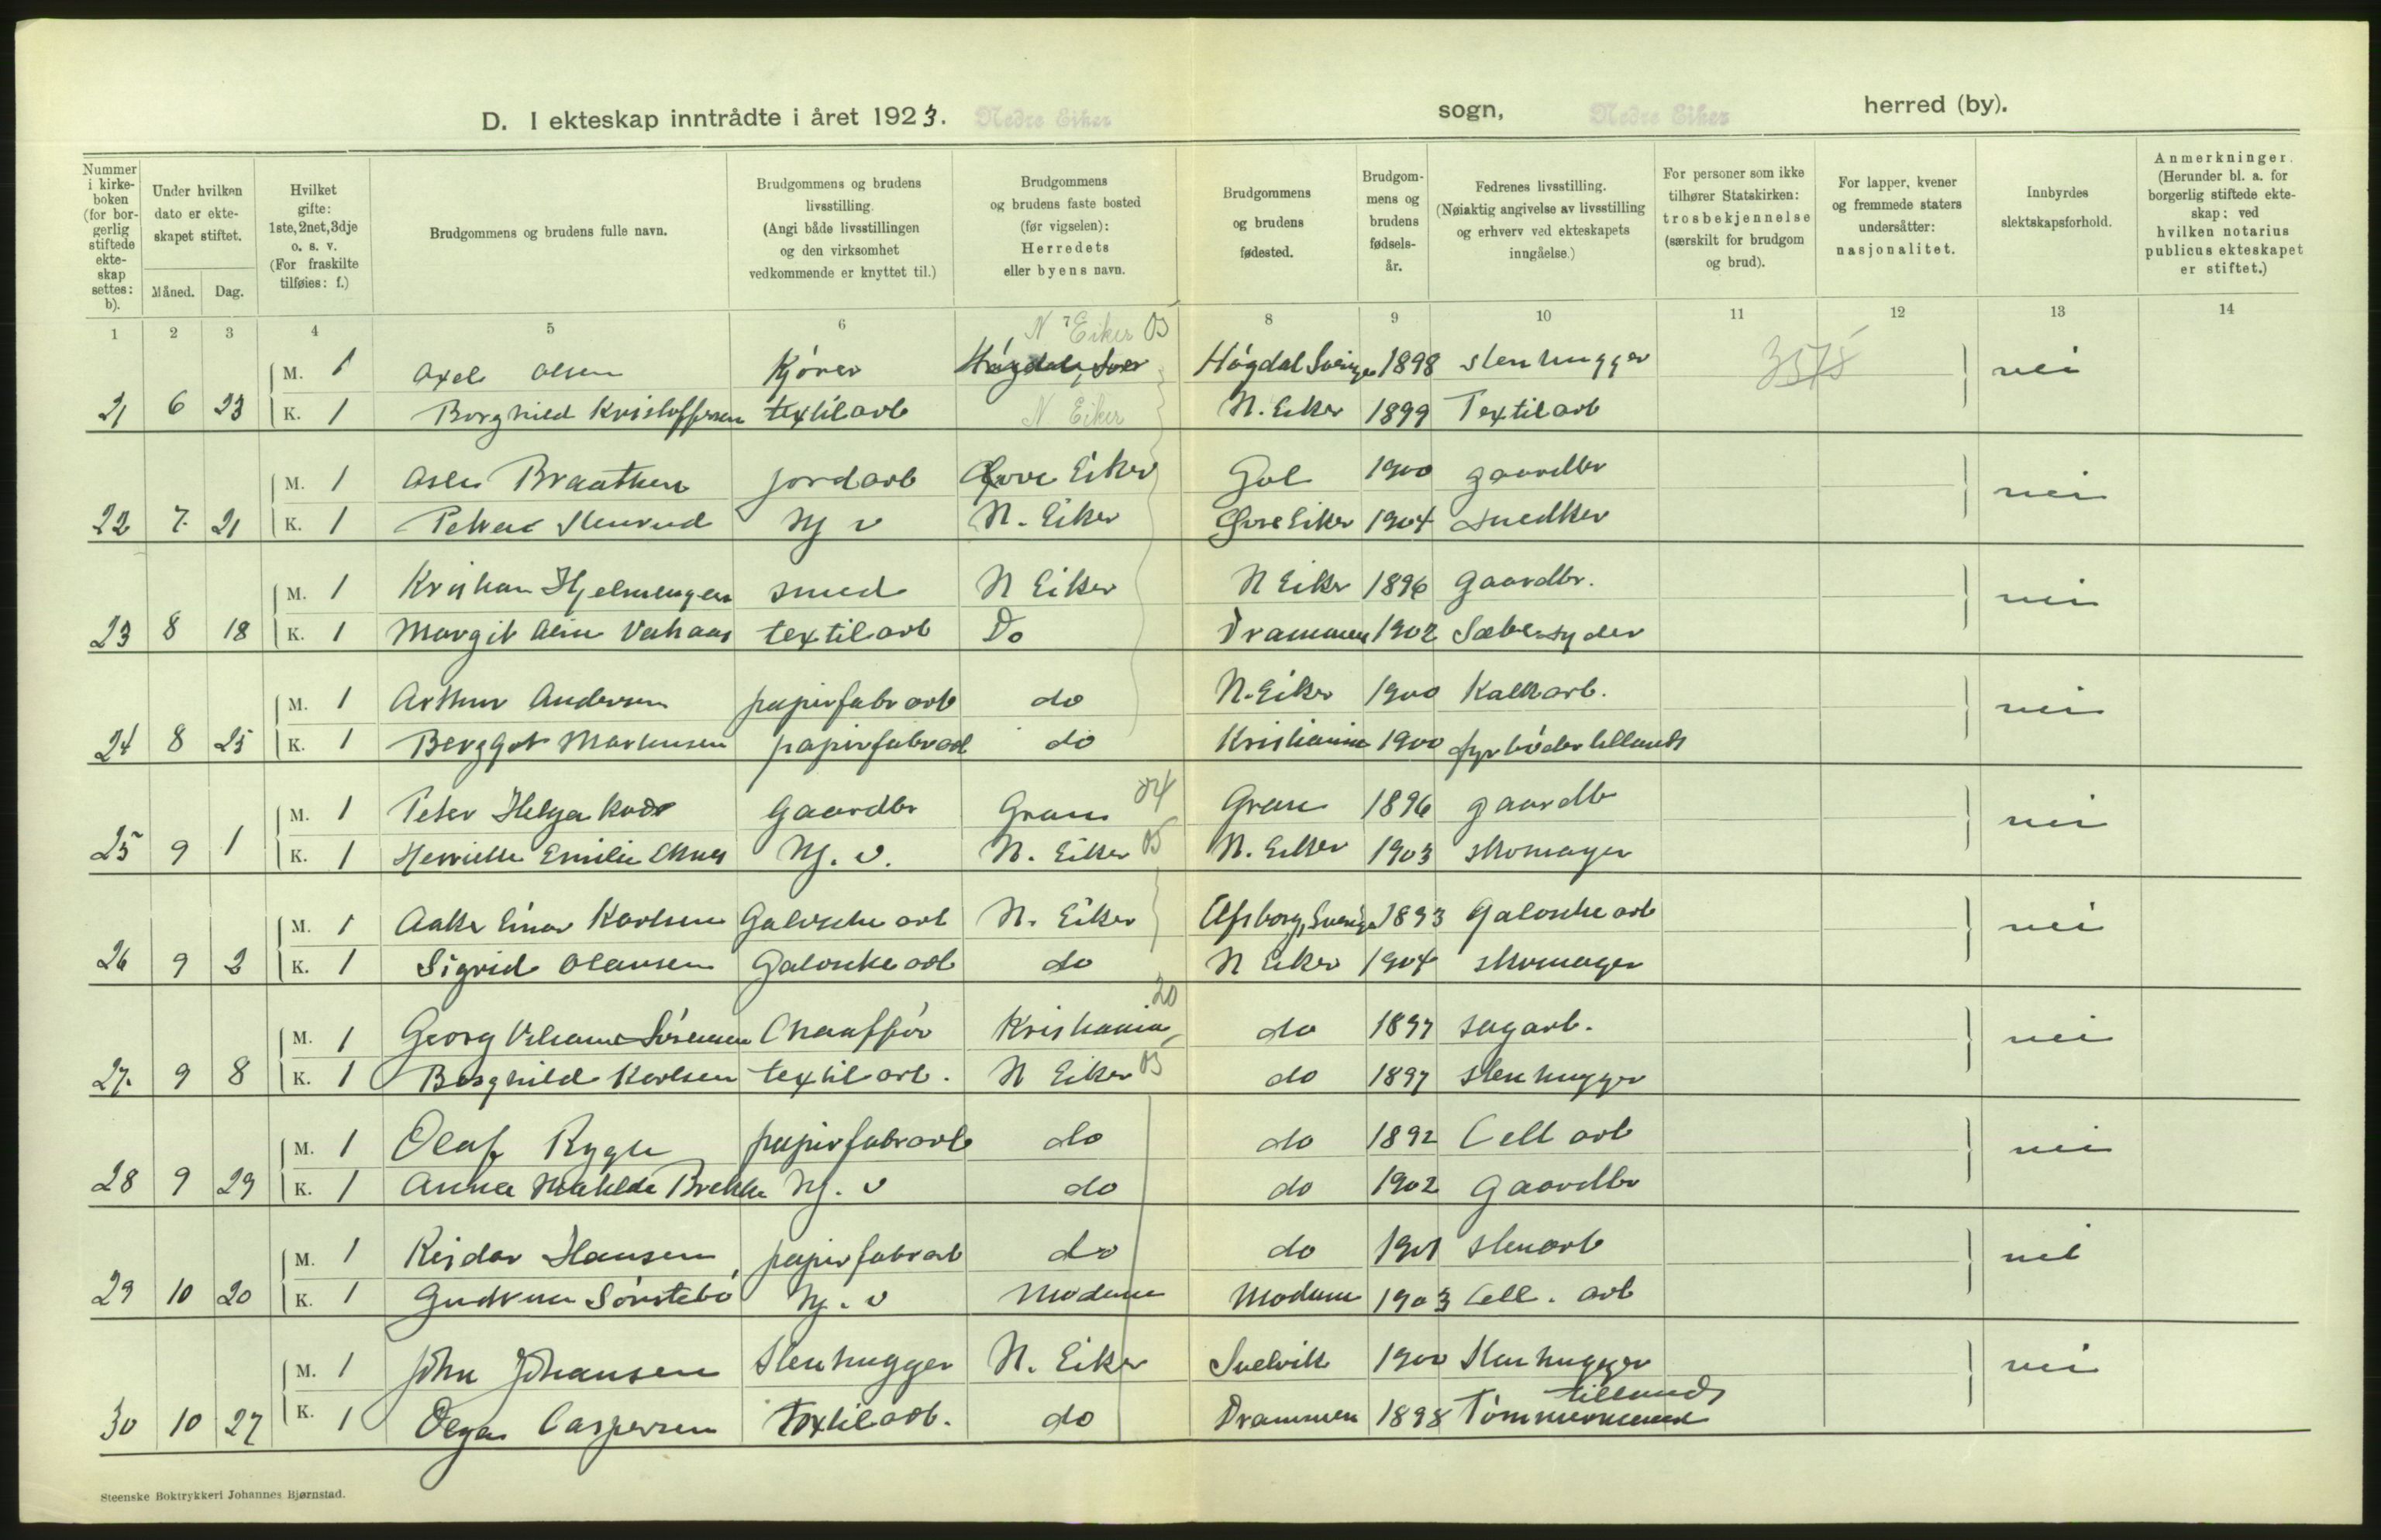 D. I ekteskap inntrådte i året 1923. Nedre Eiker sogn, Nedre Eiker herred (by).
Nummer i kirke- boken (for bor- gerlig stiftede ekte- skap settes: b).
Under hvilken dato er ekte- skapet stiftet.
Måned. Dag.
Hvilket gifte: 1ste, 2net, 3dje o. s. v. (For fraskilte tilføies: f.)
Brudgommens og brudens fulle navn.
Brudgommens og brudens livsstilling. (Angi både livsstillingen og den virksomhet vedkommende er knyttet til.)
Brudgommens og brudens faste bosted (før vigselen): Herredets eller byens navn.
Brudgommens og brudens fødested.
Brudgom- mens og brudens fødsels- år.
Fedrenes livsstilling. (Nøiaktig angivelse av livsstilling og erhverv ved ekteskapets inngåelse.)
For personer som ikke tilhører Statskirken: trosbekjennelse (særskilt for brudgom og brud).
For lapper, kvener og fremmede staters undersåtter: nasjonalitet.
Innbyrdes slektskapsforhold.
Anmerkninger. (Herunder bl. a. for borgerlig stiftede ekte- skap: ved hvilken notarius publicus ekteskapet er stiftet.)
1 2 3 4 5 6 7 8 9 10 11 12 13 14
N Eiker 05
M. 1 Axel Olsen Kjører Högdal, Sver Högdal Sverige 1898 stenhugger 3575 nei
21 6 23 K. 1 Borghild Kristoffersen textilarb N. Eiker N. Eiker 1899 Textilarb
M. 1 Asle Braathen jordarb Øvre Eiker Gol 1900 gaardbr nei
22 7. 21 K. 1 Petra Stenrud Hj v N. Eiker Øvre Eiker 1904 snedker
M. 1 Kristian Hjelmengen smed N Eiker N Eiker 1896 Gaardbr. nei
23 8 18 K. 1 Margit textilarb Do Drammen 1902 Sæbesyder
M. 1 Arthur Andersen papirfabrarb do N. Eiker 1900 Kalkarb. nei
24 8 25 K. 1 Bergljot Martinsen papirfabrarb do Kristiania 1900 fyrbøder tillands
M. 1 Peter Helgaker Gaardbr Gran 04 Gran 1896 gaardb nei
25 9 1 K. 1 Henriette Emilie Hj. v. N. Eiker 05 N. Eiker 1903 skomager
M. 1 Einar Karlsen Galoschearb N. Eiker Elfsborg, Sverige 1893 Galoschearb nei
26 9 2 K. 1 Sigrid Olausen Galoschearb do N Eiker 1904 skomager
20
M. 1 Georg Sørensen Chauffør Kristiania do 1897 sagarb. nei
27. 9 8 K. 1 Borghild Karlsen textilarb. N Eiker 05 do 1897 stenhugger
M. 1 Olaf Rygh papirfabrarb do do 1892 Cell arb nei
28 9 29 K. 1 Anna Mathilde Brekke Hj. v do do 1902 Gaardbr
M. 1 Reidar Hansen papirfabrarb do do 1901 stenarb nei
29 10 20 K. 1 Gudrun Sørstebø Hj. v Modum Modum 1903 Cell. arb
M. 1 John Johansen Stenhugger N. Eiker Svelvik 1900 Stenhugger nei
30 10 27 K. 1 Olga Caspersen Textilarb. do Drammen 1898 Tømmermand tillands
Steenske Boktrykkeri Johannes Bjørnstad.